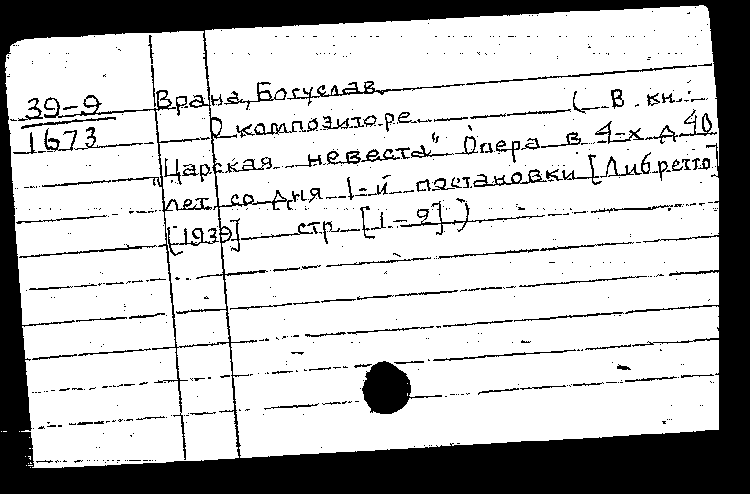 39-9
1673
Врана, Богуслав.
О композиторе. (В кн.:
"Царская невеста" Опера в 4-х д. 40
лет со дня 1-й постановки [Либретто]
[1939] стр. [1-9].)